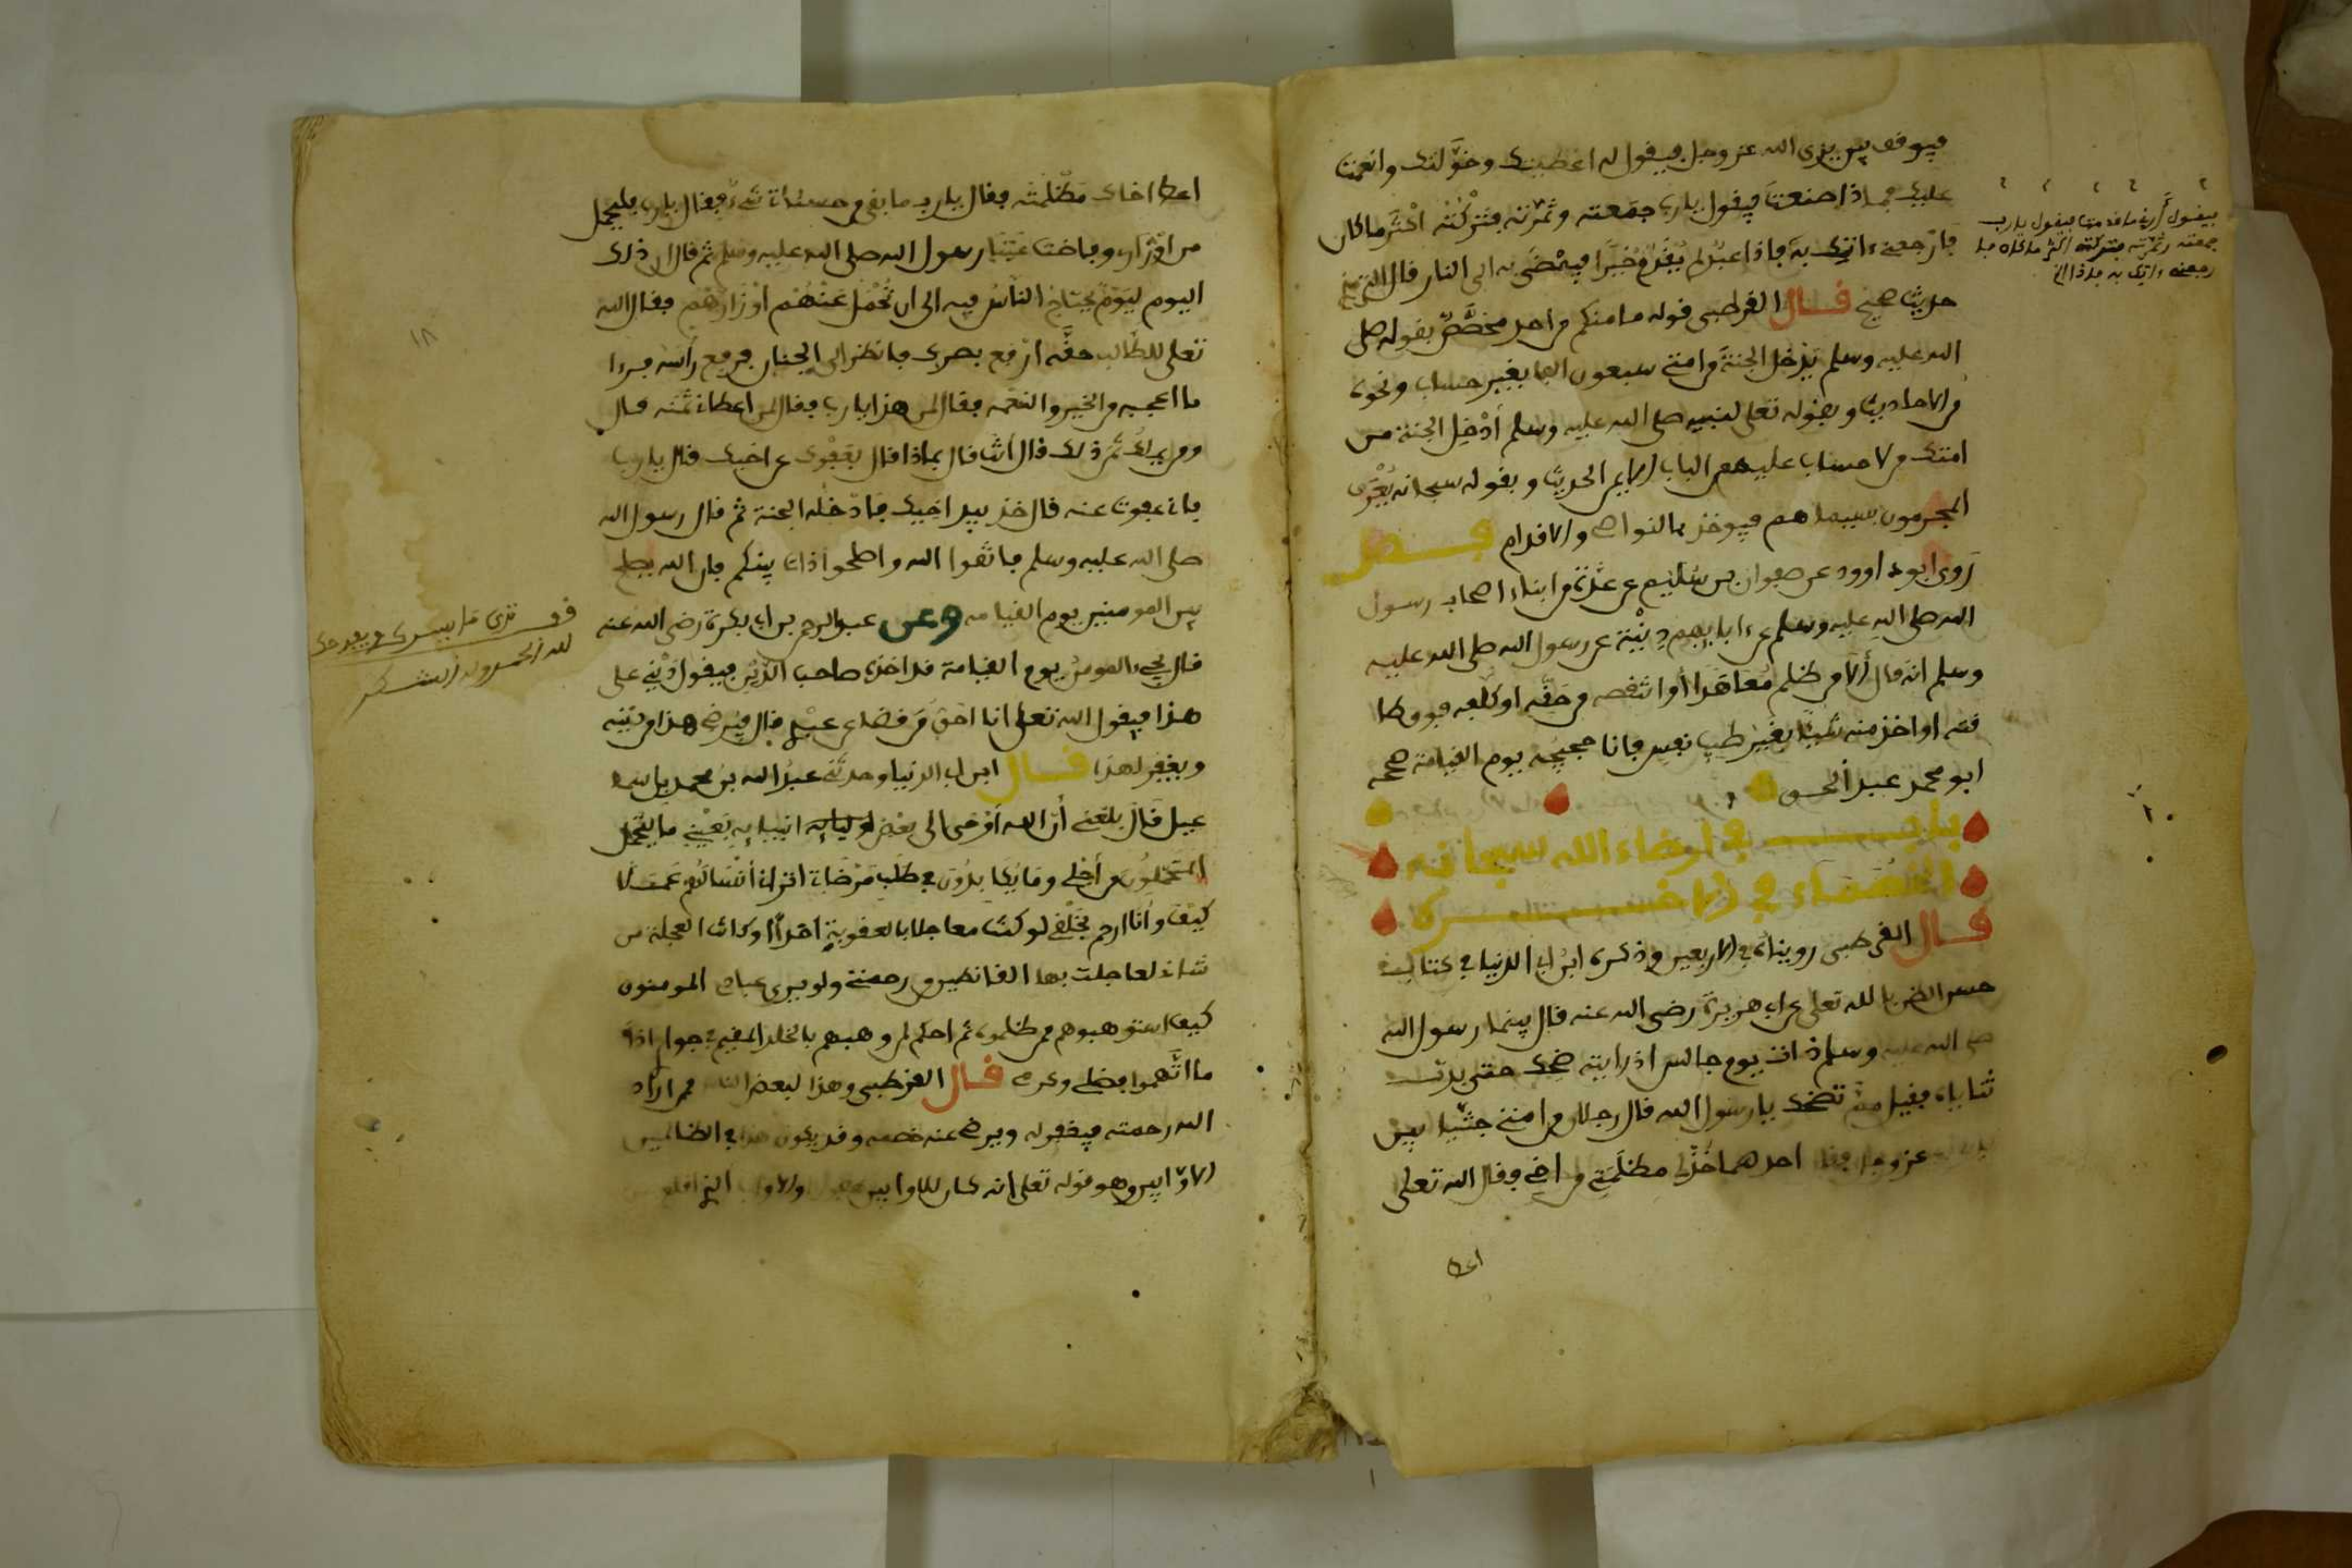 فيوقف بين يدي الله عز وجل فيقول له اعطيتك وخولتك وانعمت
عليك فماذا صنعت فيقول يا رب جمعته وثمرته فتركته اكثر ما كان
فارجعني ءاتك به فاذا عبد لم يقدم خيرا فيمضى به الى النار قال
حديث صحيح قال القرطبي قوله ما منكم من احد مخصص بقوله صلى
الله عليه وسلم يدخل الجنة من امتي سبعون الفا بغير حساب ونحوه
من الاحاديث وبقوله تعلى لنبيه صلى الله عليه وسلم أدخل الجنة من
امتك من لا حساب عليهم الباب الايمن الحديث وبقوله سبحانه يعرف
المجرمون بسيماهم فيوخذ بالنواصي والاقدام فصل
روى ابو داوود عن صفوان بن سليم عن عدة من ابناء اصحاب رسول
الله صلى الله عليه وسلم عن ءابايهم دنية عن رسول الله صلى الله عليه
وسلم انه قال ألا من ظلم معاهدا أو انتقصه من حقه او كلفه فوق طا
قته او اخذ منه شيئا بغير طيب نفس فانا حجيجه يوم القيامة صححه
ابو محمد عبد الحق
باب في ارضاء الله سبحانه
الخصماء في الاخرة
قال القرطبي رويناه في الاربعين وذكره ابن ابي الدنيا في كتاب
حسن الظن بالله تعلى عن ابي هريرة رضي الله عنه قال بينما رسول الله
صلى الله عليه وسلم ذات يوم جالس اذ رايته ضحك حتى بدت
ثناياه فقيل مم تضحك يا رسول الله قال رجلان من امتي جثيا بين
عز وجل فقال احدهما خذ لي مظلمتي من اخي فقال الله تعلى
اعط
فيقول أرني ما قدمت فيقول يا رب
جمعته وثمرته فتركته اكثر ما كان فا
رجعني ءاتيك به فاذا الخ
١٨
اعط اخاك مظلمته فقال يا رب ما بقي من حسناتي شيء فقال يا رب فليحمل
من اوزاري وفاضت عينا رسول الله صلى الله عليه وسلم ثم قال ان ذلك
اليوم ليوم يحتاج الناس فيه الى ان تحمل عنهم أوزارهم فقال الله
تعلى للطالب حقه ارفع بصرك فانظر الى الجنان فرفع رأسه فرءا
ما اعجبه من الخير والنعمة فقال لمن هذا يا رب فقال لمن اعطاني ثمنه قال
ومن يملك ثمن ذلك قال أنت قال بماذا قال بعفوك عن اخيك قال يا رب
فاني عفوت عنه قال خذ بيد اخيك فادخله الجنة ثم قال رسول الله
صلى الله عليه وسلم فاتقوا الله واصلحوا ذات بينكم فان الله يصلح
بين المومنين يوم القيامة وعن عبد الرحمن بن ابي بكرة رضي الله عنه
قال يجيء المومن يوم القيامة قد اخذه صاحب الدين فيقول ديني على
هذا فيقول الله تعلى انا احق من قضى عن عبدي قال فيرضي هذا من دينه
ويغفر لهذا قال ابن ابي الدنيا وحدثني عبد الله بن محمد بن اسما
عيل قال بلغني أن الله أوحى الى بعض انبيايه بعيني ما يتحمل
المتحملون من أجلي وما يكابدون في طلب مرضاتي اتراني أنسى لهم عملا
كيف وأنا ارحم بخلقي لو كنت معاجلا بالعقوبة احدا أو كانت العجلة من
شاني لعاجلت بها القانطين من رحمتي ولو يرى عبادي المومنون
كيف استوهبوهم ممن ظلموه ثم احكم لمن وهبهم بالخلد المقيم في جواري اذا
ما اتهموا فضلي وكرمي قال القرطبي وهذا لبعض الناس ممن اراد
الله رحمته فيغفر له ويرضي عنه خصمه وقد يكون هذا في الظالمين
الاوابين وهو قوله تعلى انه كان للاوابين
لله الحمد وله الشكر